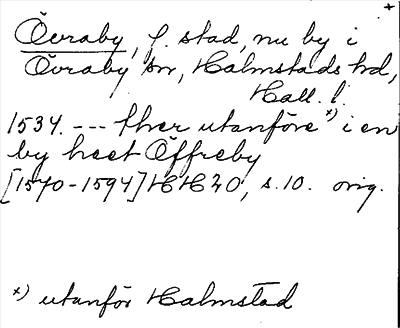 +
Övraby, f. stad, nu by i
Övraby sn, Halmstads hd,
Hall. l.
1534. --- ther utanföre *) i en
by heet Öffreby
[1570-1594] HH 20, s. 10. orig.
*) utanför Halmstad